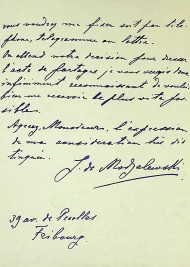 vous voudrez me fixer soit par télé-
phone, télégramme ou lettre.
On attend notre décision pour dresser
l'acte de partages, je vous serais donc
infiniment reconnaissant de vouloir
bien me recevoir le plus vite pos-
sible.
Agréez, Monsieur, l'expression
de ma considération très dis-
tinguée.
J. de Modzelewski
39 av. de Pérolles
Fribourg.